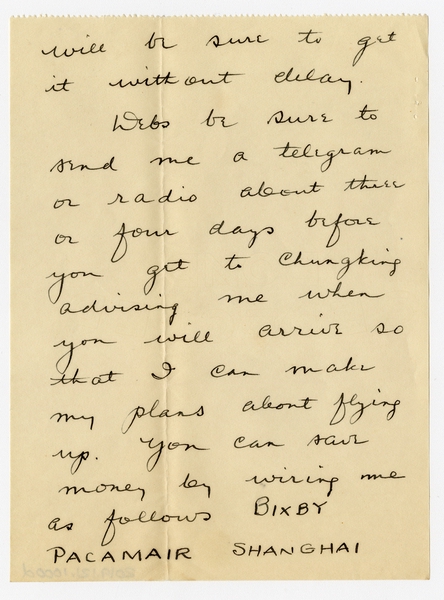 will be sure to get
it without delay.
Webs be sure to
send me a telegram
or radio about three
or four days before
you get to Chungking
advising me when
you will arrive so
that I can make
my plans about flying
up. You can save
money by wiring me
as follows BIXBY
PACAMAIR SHANGHAI